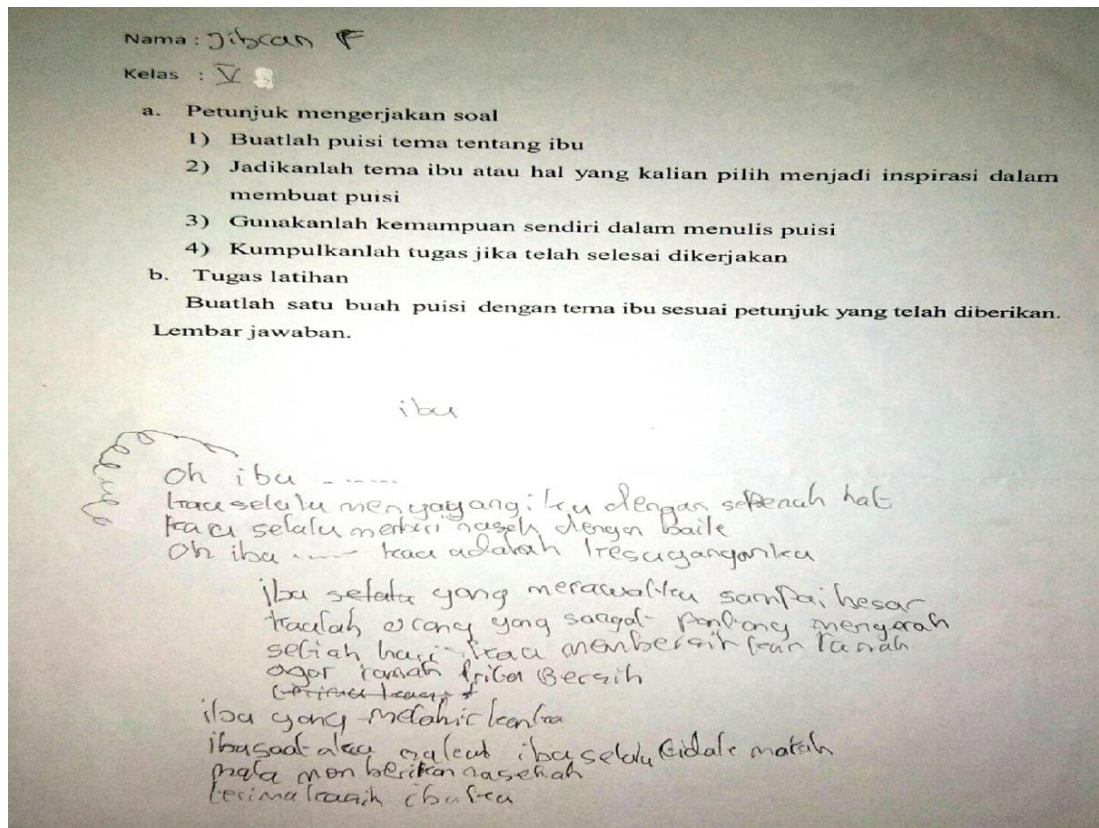 Nama : Jibran F
Kelas : V
a. Petunjuk mengerjakan soal
1) Buatlah puisi tema tentang ibu
2) Jadikanlah tema ibu atau hal yang kalian pilih menjadi inspirasi dalam
membuat puisi
3) Gunakanlah kemampuan sendiri dalam menulis puisi
4) Kumpulkanlah tugas jika telah selesai dikerjakan
b. Tugas latihan
Buatlah satu buah puisi dengan tema ibu sesuai petunjuk yang telah diberikan.
Lembar jawaban.
ibu
Oh ibu ......
kau selalu menyayangi ku dengan sepenuh hat
kau selalu dengan baik
Oh ibu ..... kau adalah kesayanganku
ibu yang merawatku sampai besar
kaulah orang yang sangat
setiah hari kau
agar rumah kita Bersih
ibu yang
ibu saat aku ibu selalu tidak marah
nasehah
terimakasih ibuku